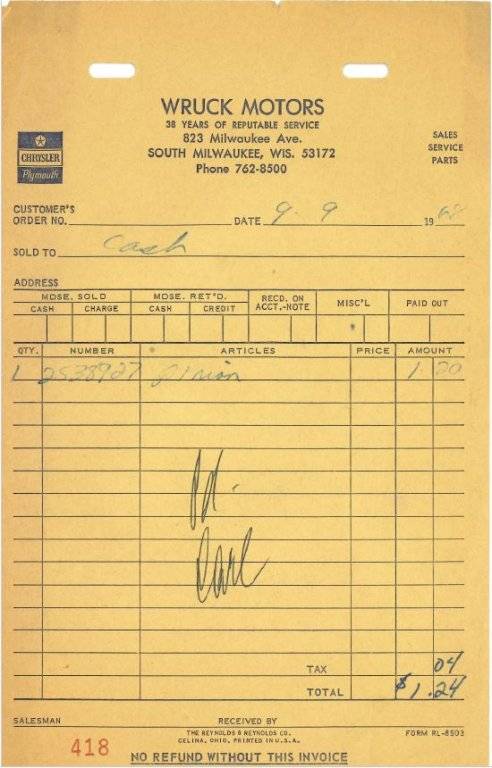 WRUCK MOTORS
38 YEARS OF REPUTABLE SERVICE
823 Milwaukee Ave.
SOUTH MILWAUKEE, WIS. 53172
Phone 762-8500
CHRYSLER
Plymouth
SALES
SERVICE
PARTS
CUSTOMER'S
ORDER NO. DATE 9. 9 1968
SOLD TO Cash
ADDRESS
MDSE. SOLD MDSE. RET'D. RECD. ON ACCT.-NOTE MISC'L PAID OUT
CASH CHARGE CASH CREDIT
QTY. NUMBER ARTICLES PRICE AMOUNT
1 2538927 1.20
Pd.
Carl
TAX 04
TOTAL $1.24
SALESMAN RECEIVED BY
THE REYNOLDS & REYNOLDS CO. FORM RL-8503
CELINA, OHIO, PRINTED IN U.S.A.
418
NO REFUND WITHOUT THIS INVOICE